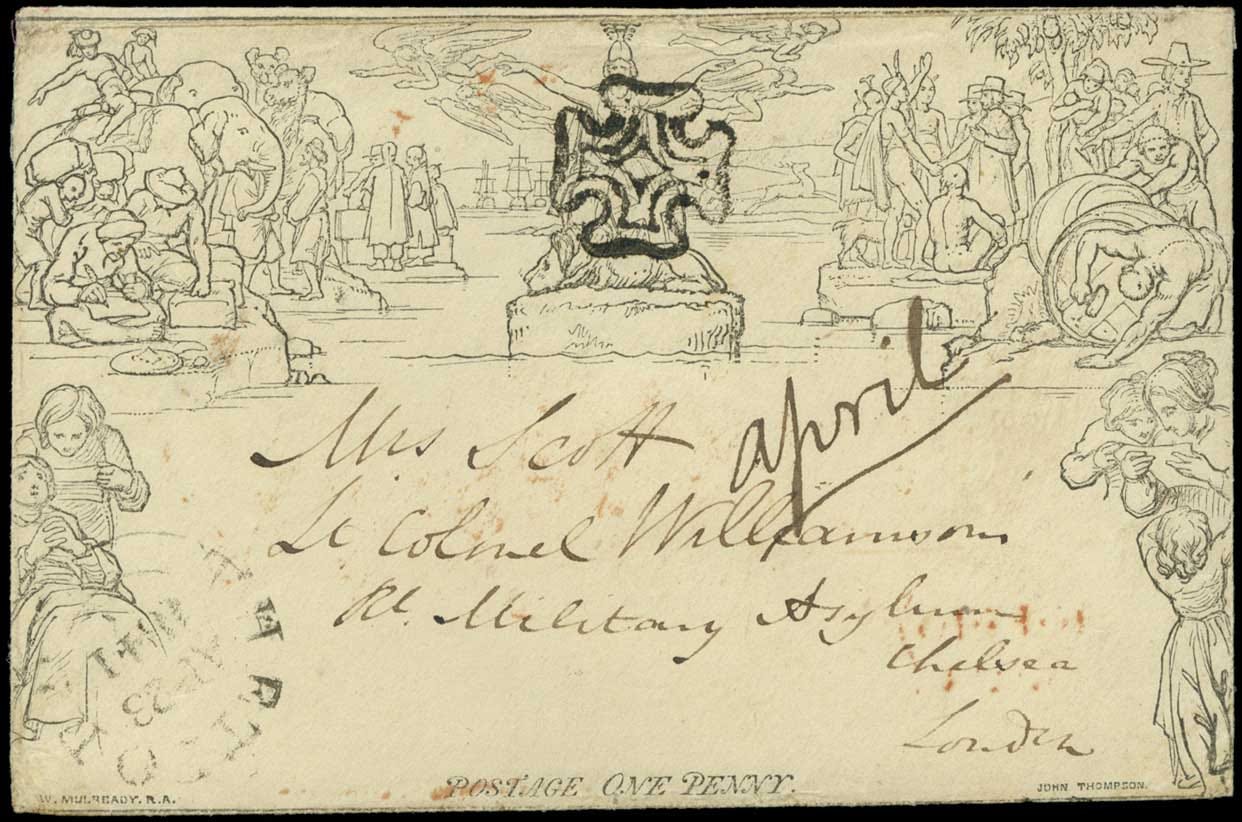 april
Mrs Scott
Lt Colonel Williamson
Rl. Military Asylum
Chelsea
London
AP 23
1841
POSTAGE ONE PENNY.
W. MULREADY. R.A.
JOHN THOMPSON.